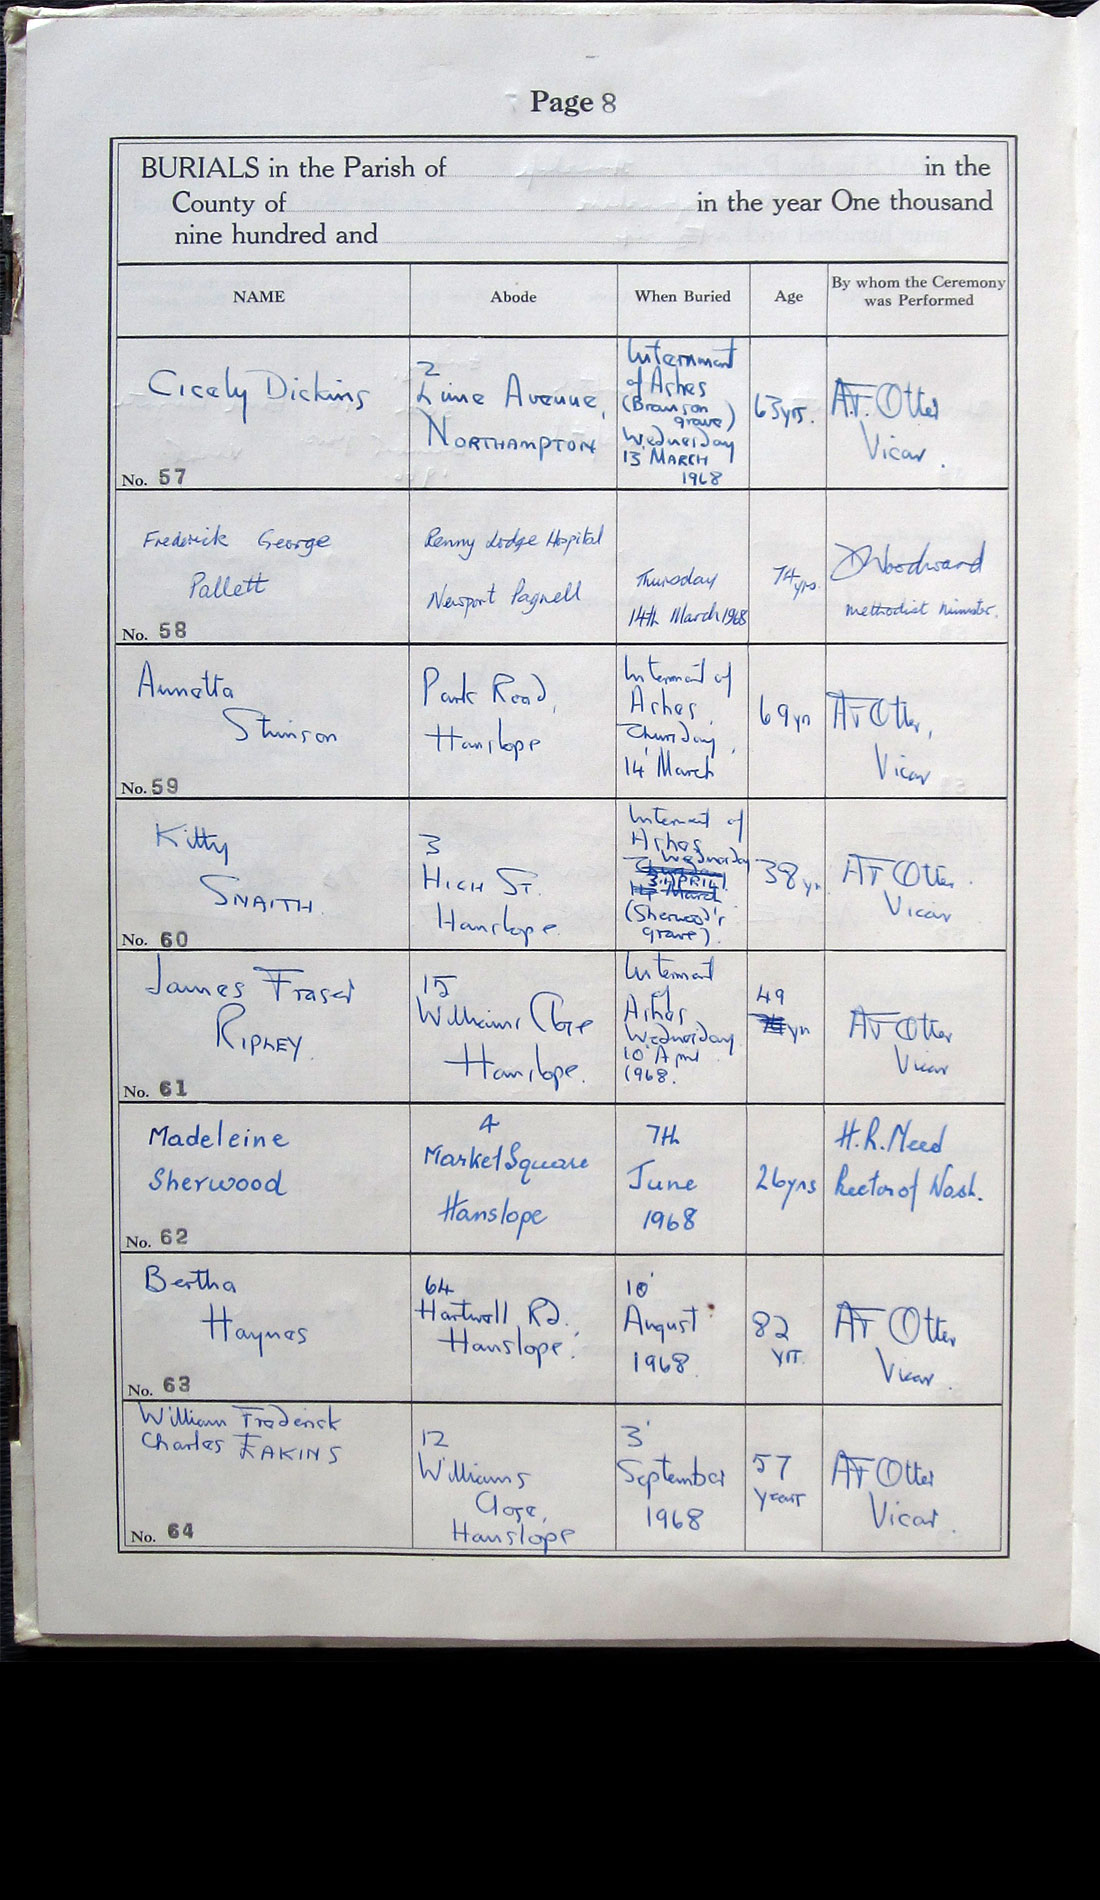 Page 8
BURIALS in the Parish of in the
County of in the year One thousand
nine hundred and
NAME Abode When Buried Age By whom the Ceremony
was Performed
Cicely Dickins
No. 57
2
Lime Avenue,
NORTHAMPTON
Internment
of Ashes
(Branson
grave)
Wednesday
13 MARCH
1968
63 yrs.
A.F. Otter
Vicar.
Frederick George
Pallett
No. 58
Renny Lodge Hospital
Newport Pagnell
Thursday
14th March 1968
74
yrs.
Woodward
Methodist Minister.
Annetta
Stimson
No. 59
Park Road,
Hanslope
Interment of
Ashes
Thursday,
14 March
69 yrs
AF Otter,
Vicar
Kitty
SNAITH.
No. 60
3
HIGH ST.
Hanslope.
Interment of
Ashes
Wednesday
3 APRIL
14 March
(Sherwood's
grave).
38 yrs
AF Otter.
Vicar
James Fraser
RIPLEY.
No. 61
15
Williams Close
Hanslope.
Interment
of
Ashes
Wednesday
10 April
1968.
49
yrs
AF Otter
Vicar
Madeleine
Sherwood
No. 62
4
Market Square
Hanslope
7th
June
1968
26 yrs
H.R. Meed
Rector of Nash.
Bertha
Haynes
No. 63
64
Hartwell Rd.
Hanslope.
10
August
1968
82
yrs.
AF Otter
Vicar.
William Frederick
Charles EAKINS
No. 64
12
Williams
Close,
Hanslope
3
September
1968
57
years
AF Otter
Vicar.